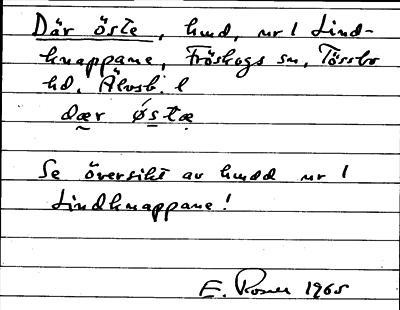 Där öste, hmd, nr 1 Lind-
knappane, Fröskogs sn, Tössbo
hd, Älvsb. l
dær østæ
Se översikt av hmdd nr 1
Lindknappane!
E. Rosell 1965